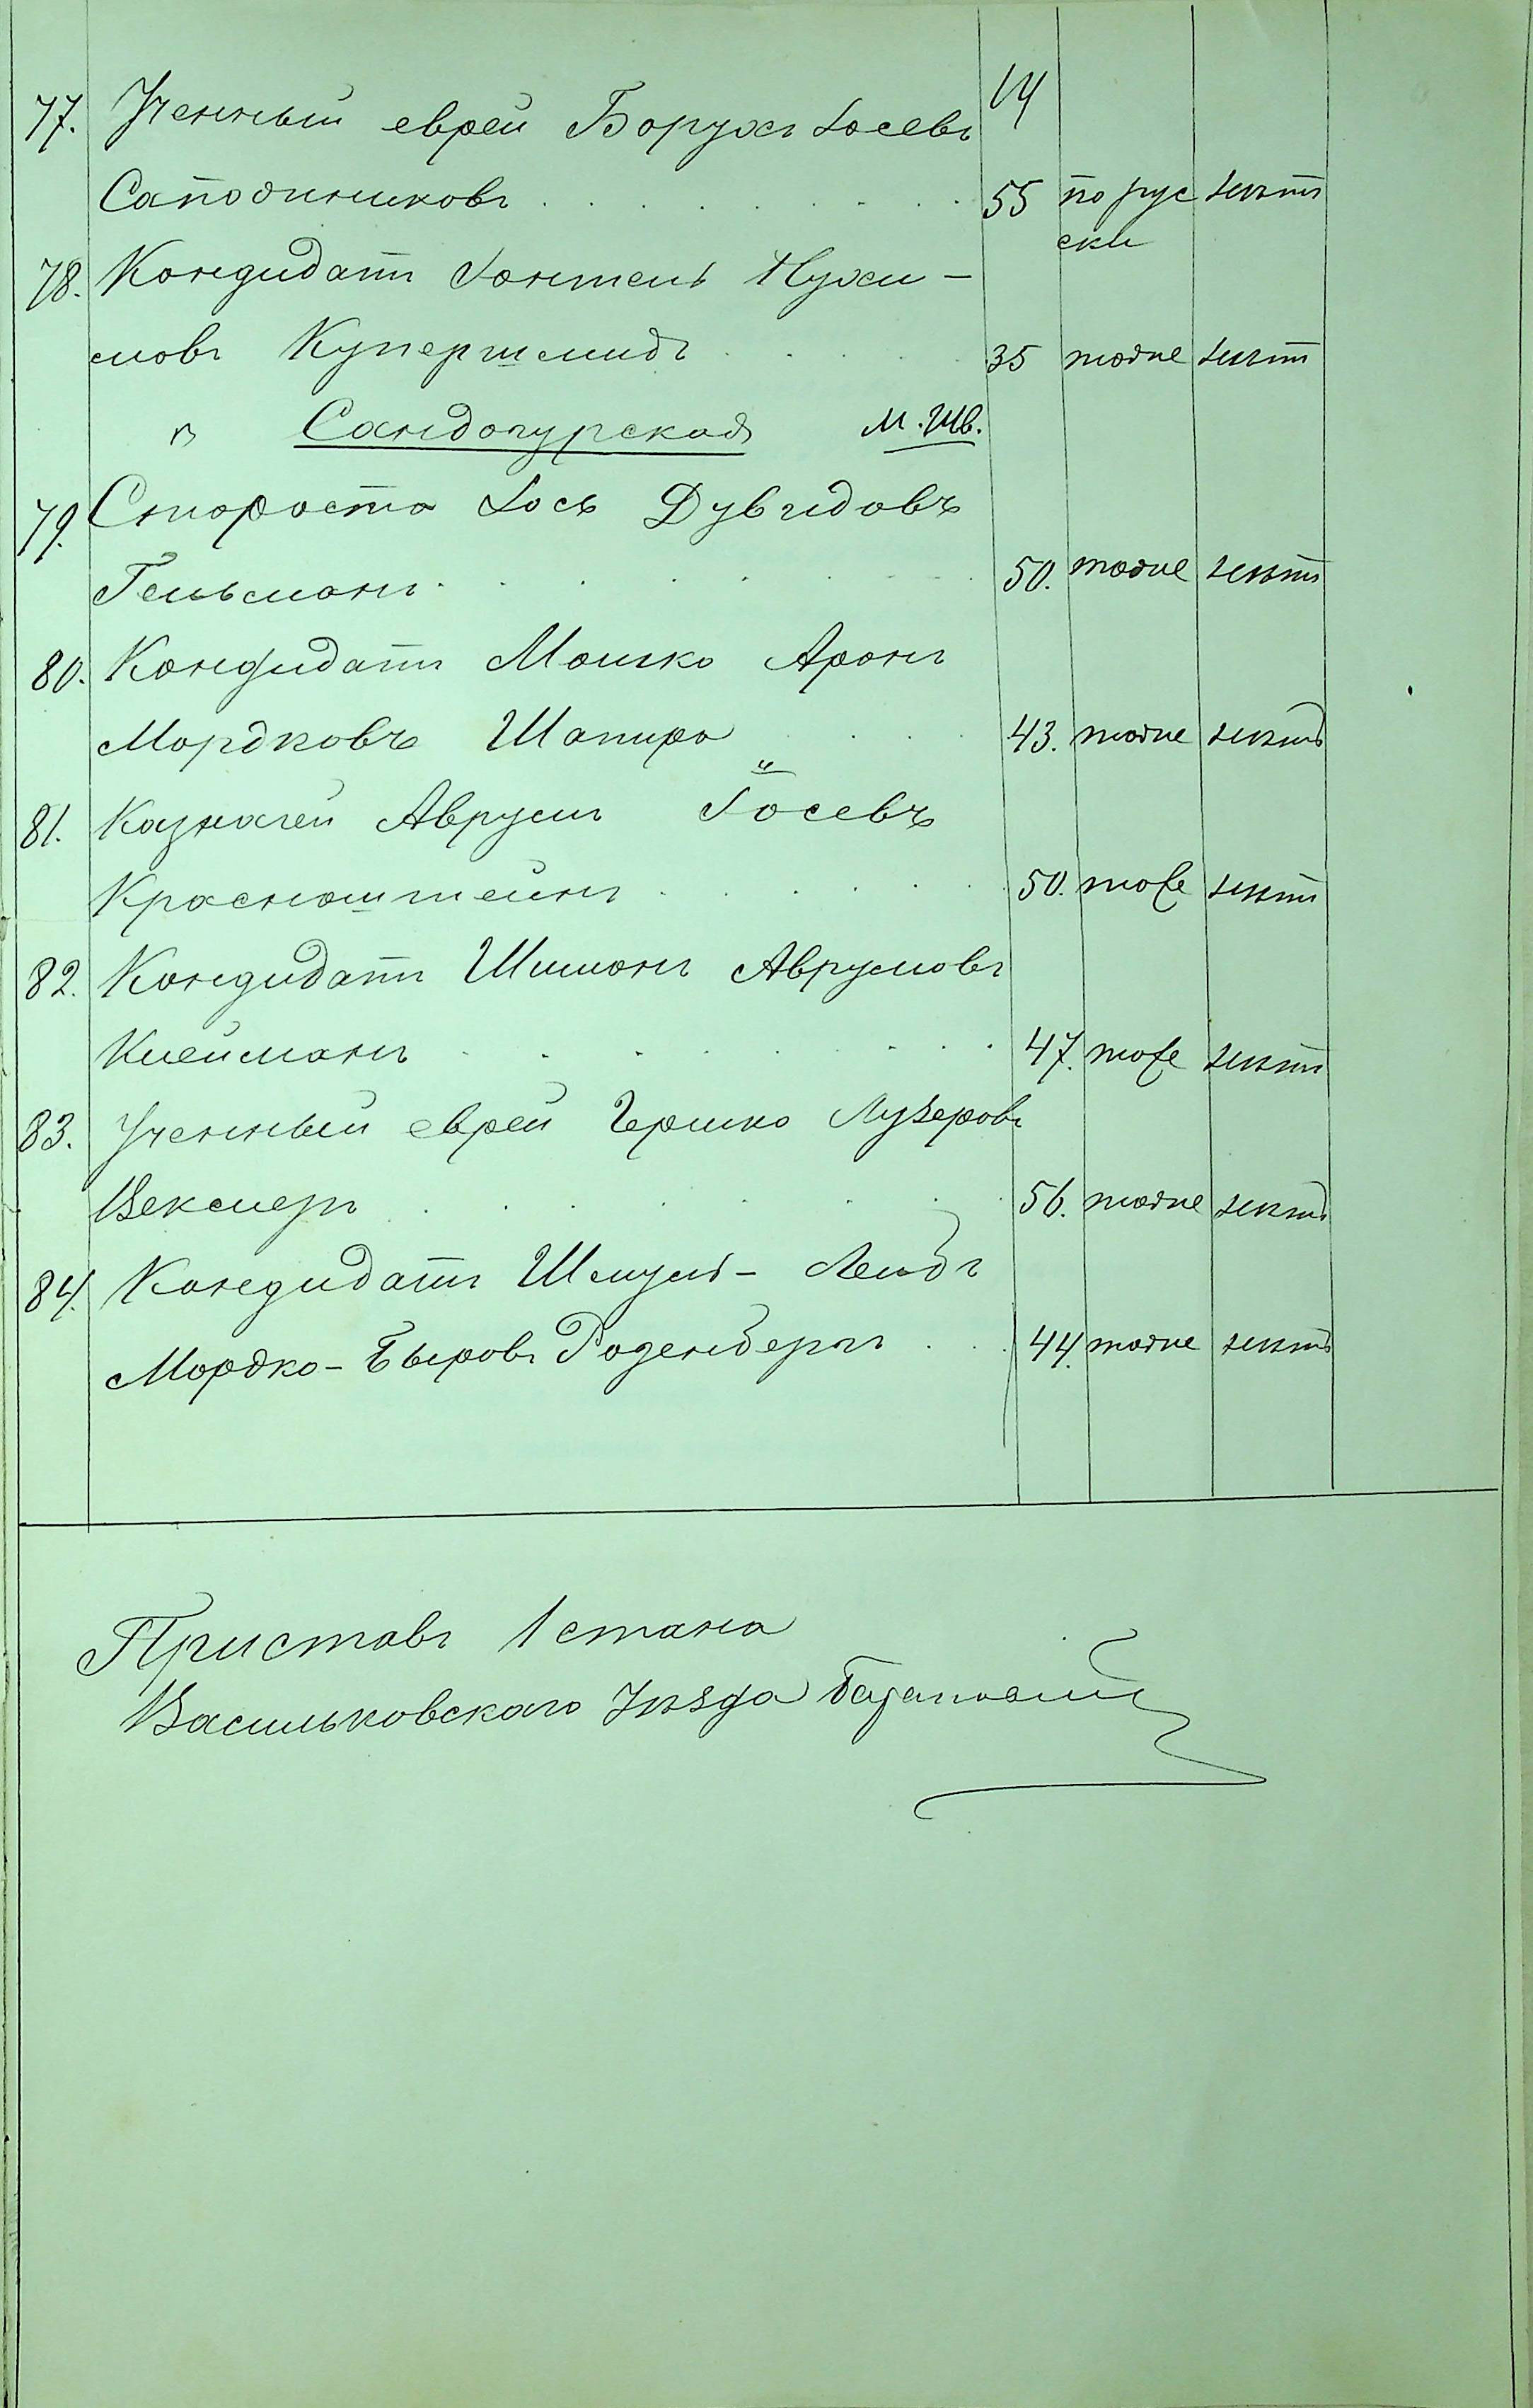 14
77. Ученный еврей Борухъ Іосевъ
Саподниковъ . . . . . . . . 55 по рус нѣтъ
ски
78. Кандидатъ Іонтель Нухи-
мовъ Купершмидъ . . . . 35 тоже нѣтъ
" М. Шв.
79. Староста Іось Дувидовъ
Гельманъ . . . . . . 50. тоже нѣтъ
80. Кандидатъ Мошко Аронъ
Мордковъ Шапиро . . . 43. тоже нѣтъ
81. Казначей Аврумъ Іосевъ
Красноштейнъ . . . . . 50. тоже нѣтъ
82. Кандидатъ Шимонъ Аврумовъ
Клейманъ . . . . . . . . 47. тоже нѣтъ
83. Ученный еврей Гершко Лузеровъ
Векслеръ . . . . . . . 56. тоже нѣтъ
84. Кандидатъ Шмуль-Лейбъ
Мордко-Беровъ Розенбергъ . . . 44. тоже нѣтъ
Приставъ 1 стана
Васильковскаго Уѣзда